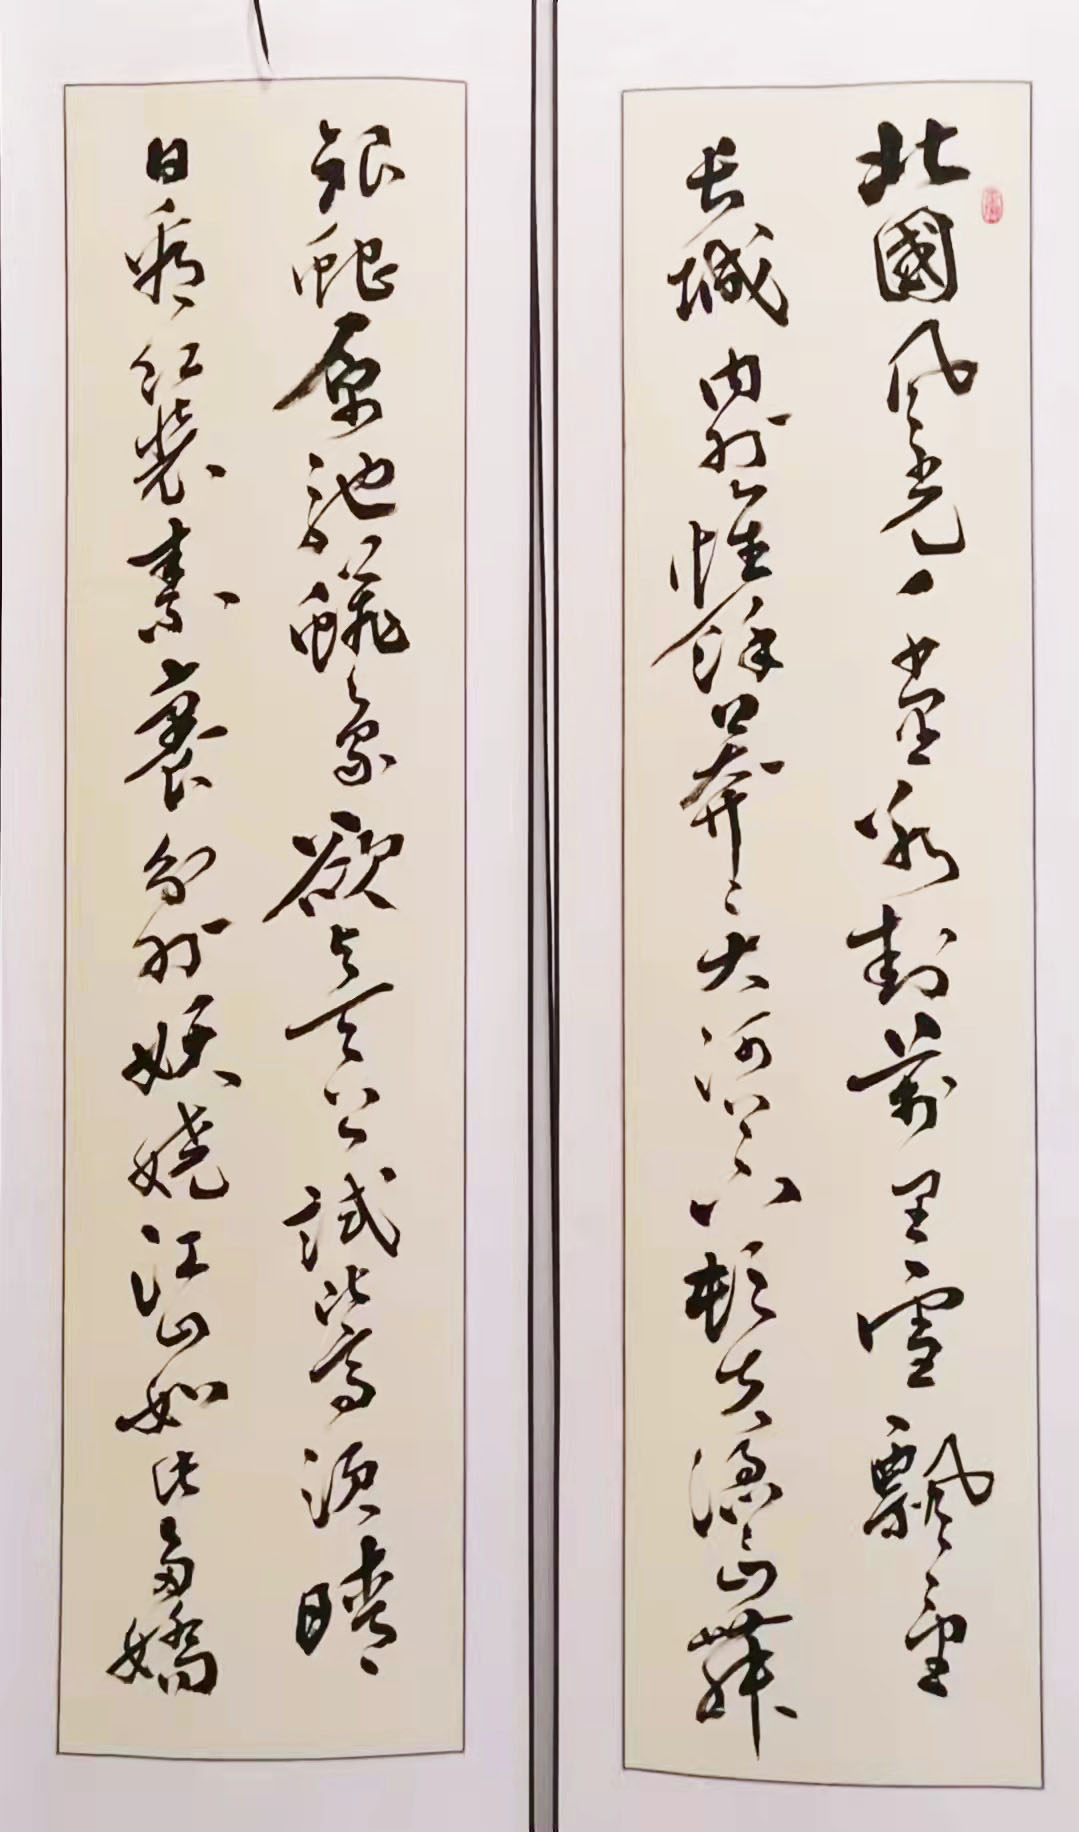 北國風光千里冰封萬里雪飄望
長城内外惟餘莽〻大河上下頓失滔〻山舞
銀蛇原馳蠟象欲与天公試比高須晴
日看紅裝素裹分外妖嬈江山如此多嬌